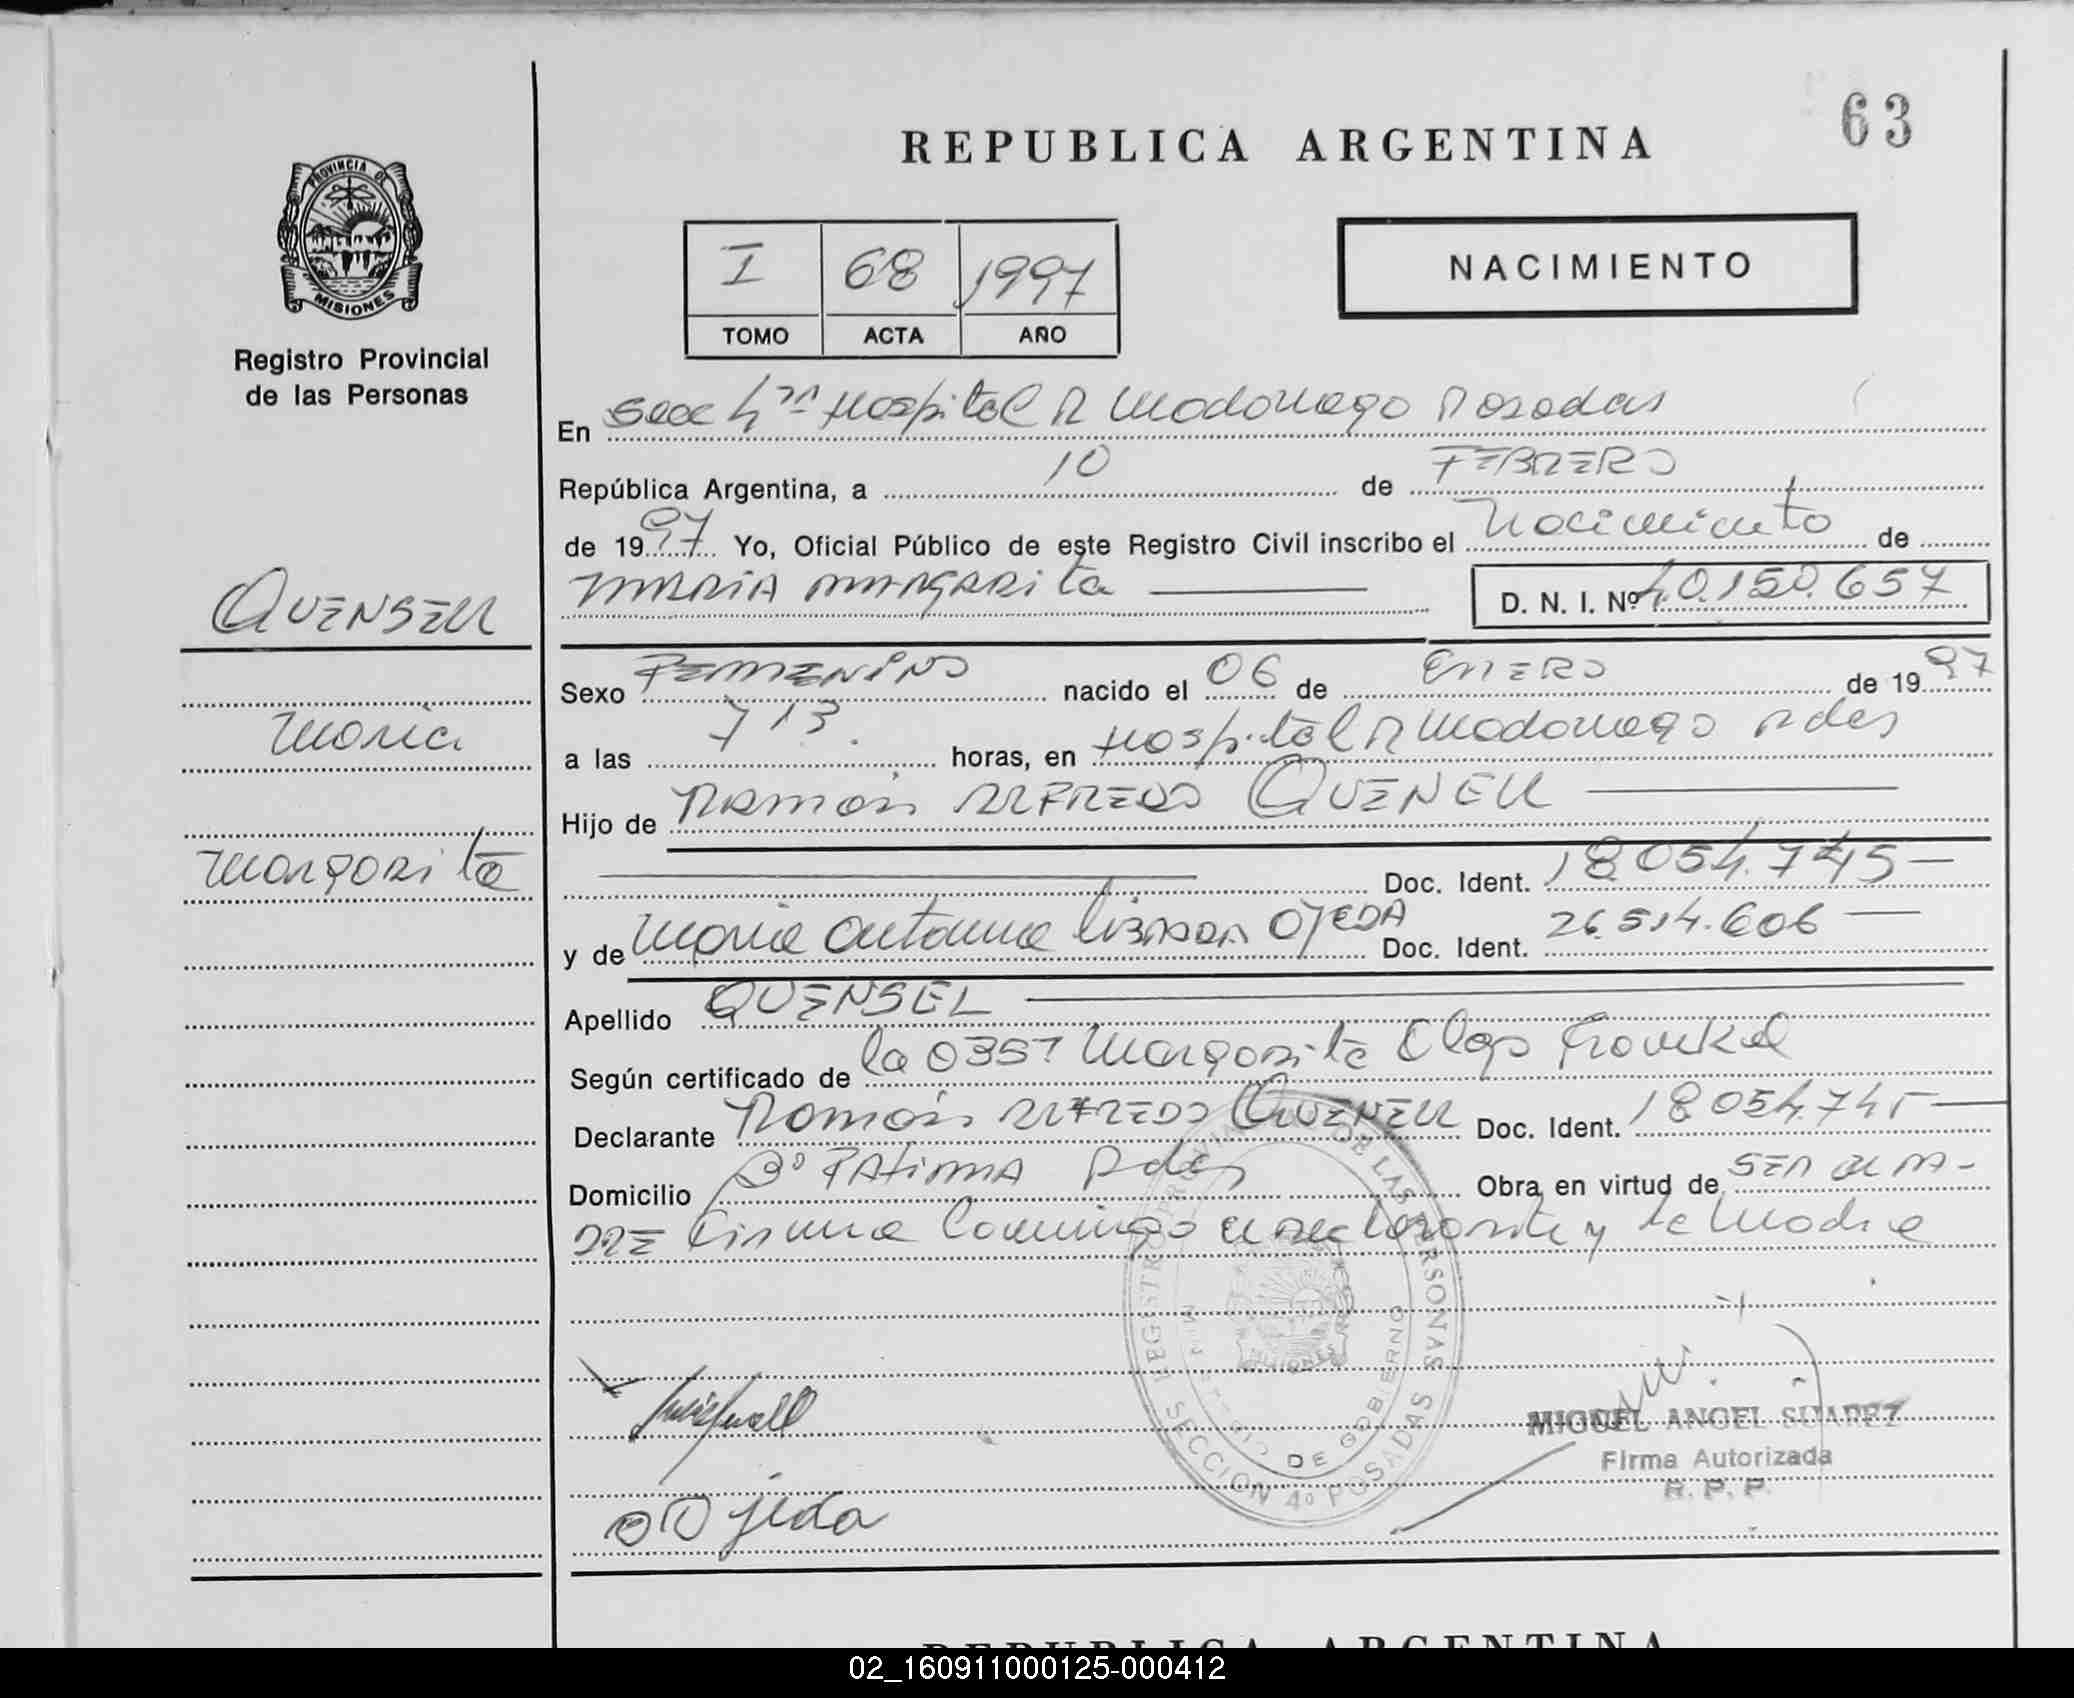 63
REPUBLICA ARGENTINA
PROVINCIA DE MISIONES
Registro Provincial
de las Personas
I 68 1997
TOMO ACTA AÑO
NACIMIENTO
En Secc 4ta Hospital R Madariaga Posadas
República Argentina, a 10 de FEBRERO
de 1997 Yo, Oficial Público de este Registro Civil inscribo el Nacimiento de
MARIA MARGARITA
D. N. I. Nº 40.150.657
QUENSELL
Maria
Margarita
Sexo FEMENINO nacido el 06 de ENERO de 1997
a las 713. horas, en Hospital R Madariaga Pdas
Hijo de RAMON ALFREDO QUENELL
Doc. Ident. 18.054.745
y de Maria Antonia OJEDA Doc. Ident. 26.514.606
Apellido QUENSEL
Según certificado de la Margarita Olga
Declarante RAMON ALFREDO QUENELL Doc. Ident. 18.054.745
Domicilio Bº FATIMA Pdas Obra en virtud de SER EL PA-
DRE Firma Conmigo el declarante y la Madre
Ojeda
REGISTRO PROVINCIAL DE LAS PERSONAS
MINISTERIO DE GOBIERNO
MISIONES
SECCION 4º POSADAS
MIGUEL ANGEL SUAREZ
Firma Autorizada
R. P. P.
REPUBLICA ARGENTINA
02_160911000125-000412